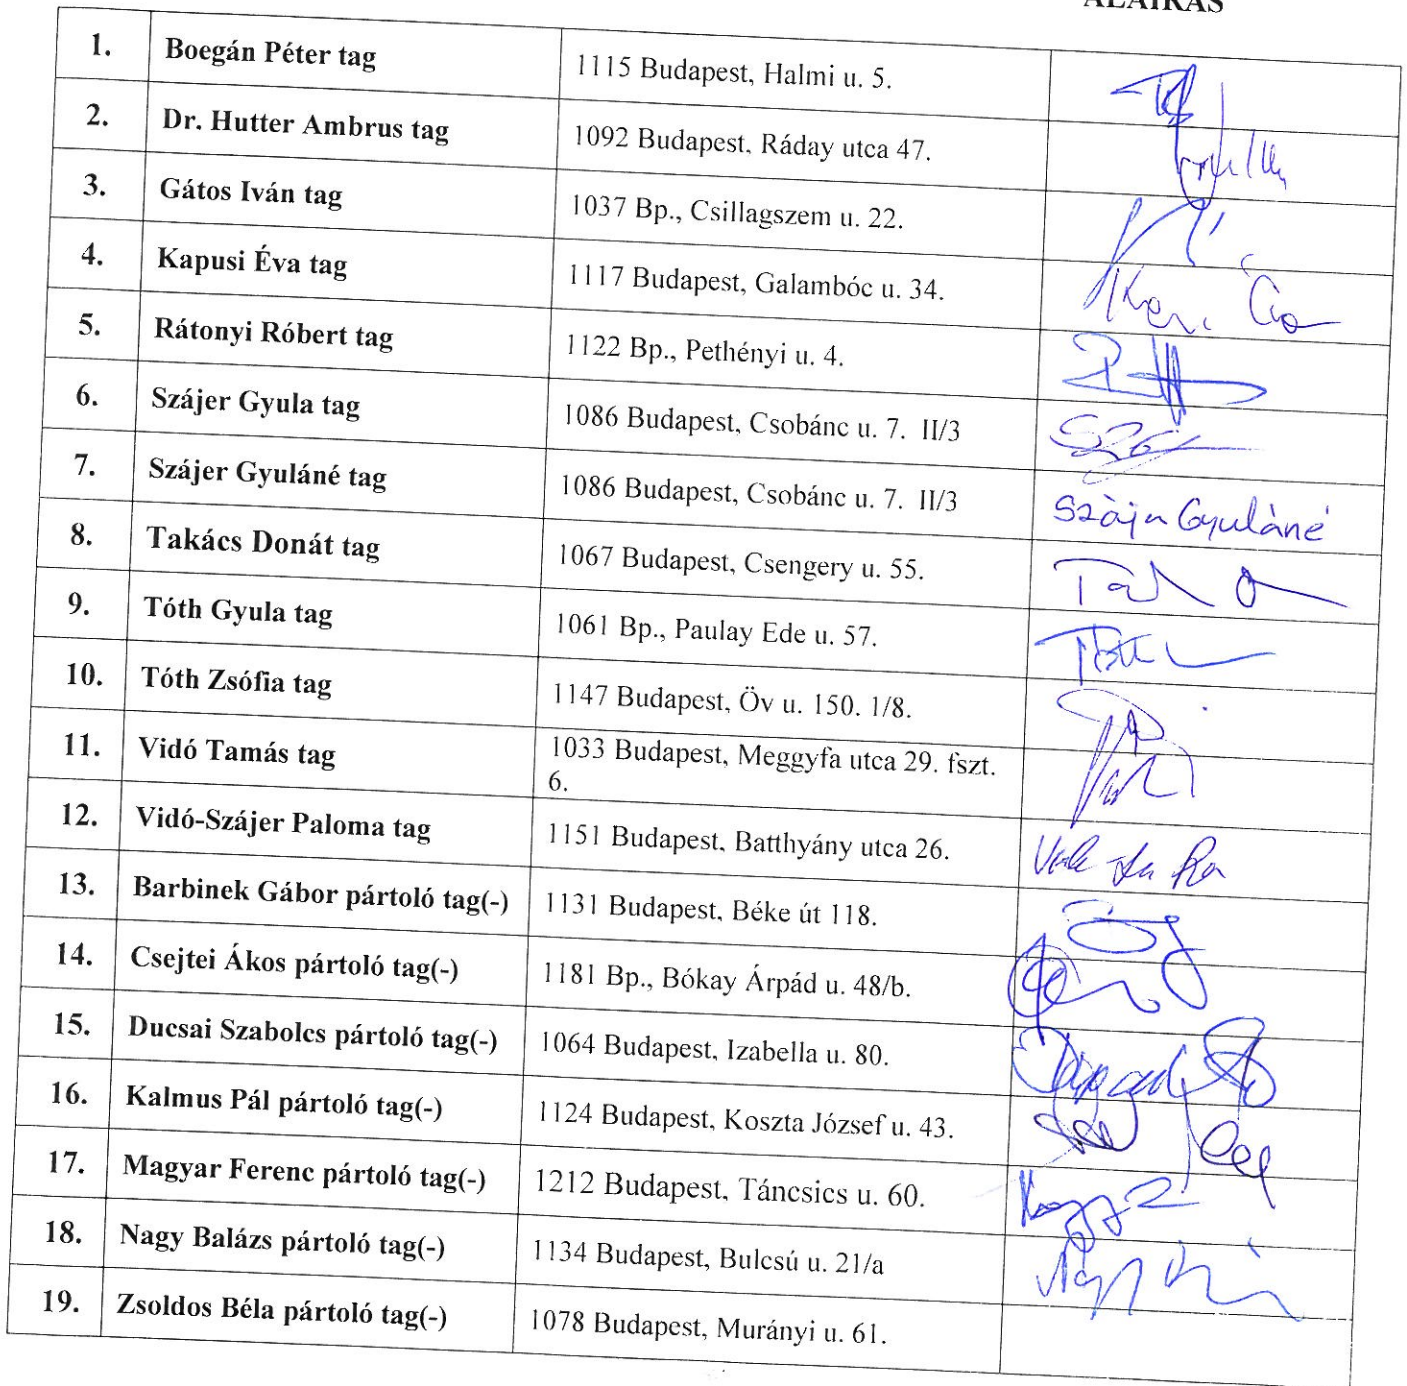 ALÁÍRÁS
1. Boegán Péter tag 1115 Budapest, Halmi u. 5.
2. Dr. Hutter Ambrus tag 1092 Budapest, Ráday utca 47.
3. Gátos Iván tag 1037 Bp., Csillagszem u. 22.
4. Kapusi Éva tag 1117 Budapest, Galambóc u. 34.
5. Rátonyi Róbert tag 1122 Bp., Pethényi u. 4.
6. Szájer Gyula tag 1086 Budapest, Csobánc u. 7. II/3
7. Szájer Gyuláné tag 1086 Budapest, Csobánc u. 7. II/3 Szájer Gyuláné
8. Takács Donát tag 1067 Budapest, Csengery u. 55.
9. Tóth Gyula tag 1061 Bp., Paulay Ede u. 57.
10. Tóth Zsófia tag 1147 Budapest, Öv u. 150. 1/8.
11. Vidó Tamás tag 1033 Budapest, Meggyfa utca 29. fszt.
6.
12. Vidó-Szájer Paloma tag 1151 Budapest, Batthyány utca 26.
13. Barbinek Gábor pártoló tag(-) 1131 Budapest, Béke út 118.
14. Csejtei Ákos pártoló tag(-) 1181 Bp., Bókay Árpád u. 48/b.
15. Ducsai Szabolcs pártoló tag(-) 1064 Budapest, Izabella u. 80.
16. Kalmus Pál pártoló tag(-) 1124 Budapest, Koszta József u. 43.
17. Magyar Ferenc pártoló tag(-) 1212 Budapest, Táncsics u. 60.
18. Nagy Balázs pártoló tag(-) 1134 Budapest, Bulcsú u. 21/a
19. Zsoldos Béla pártoló tag(-) 1078 Budapest, Murányi u. 61.